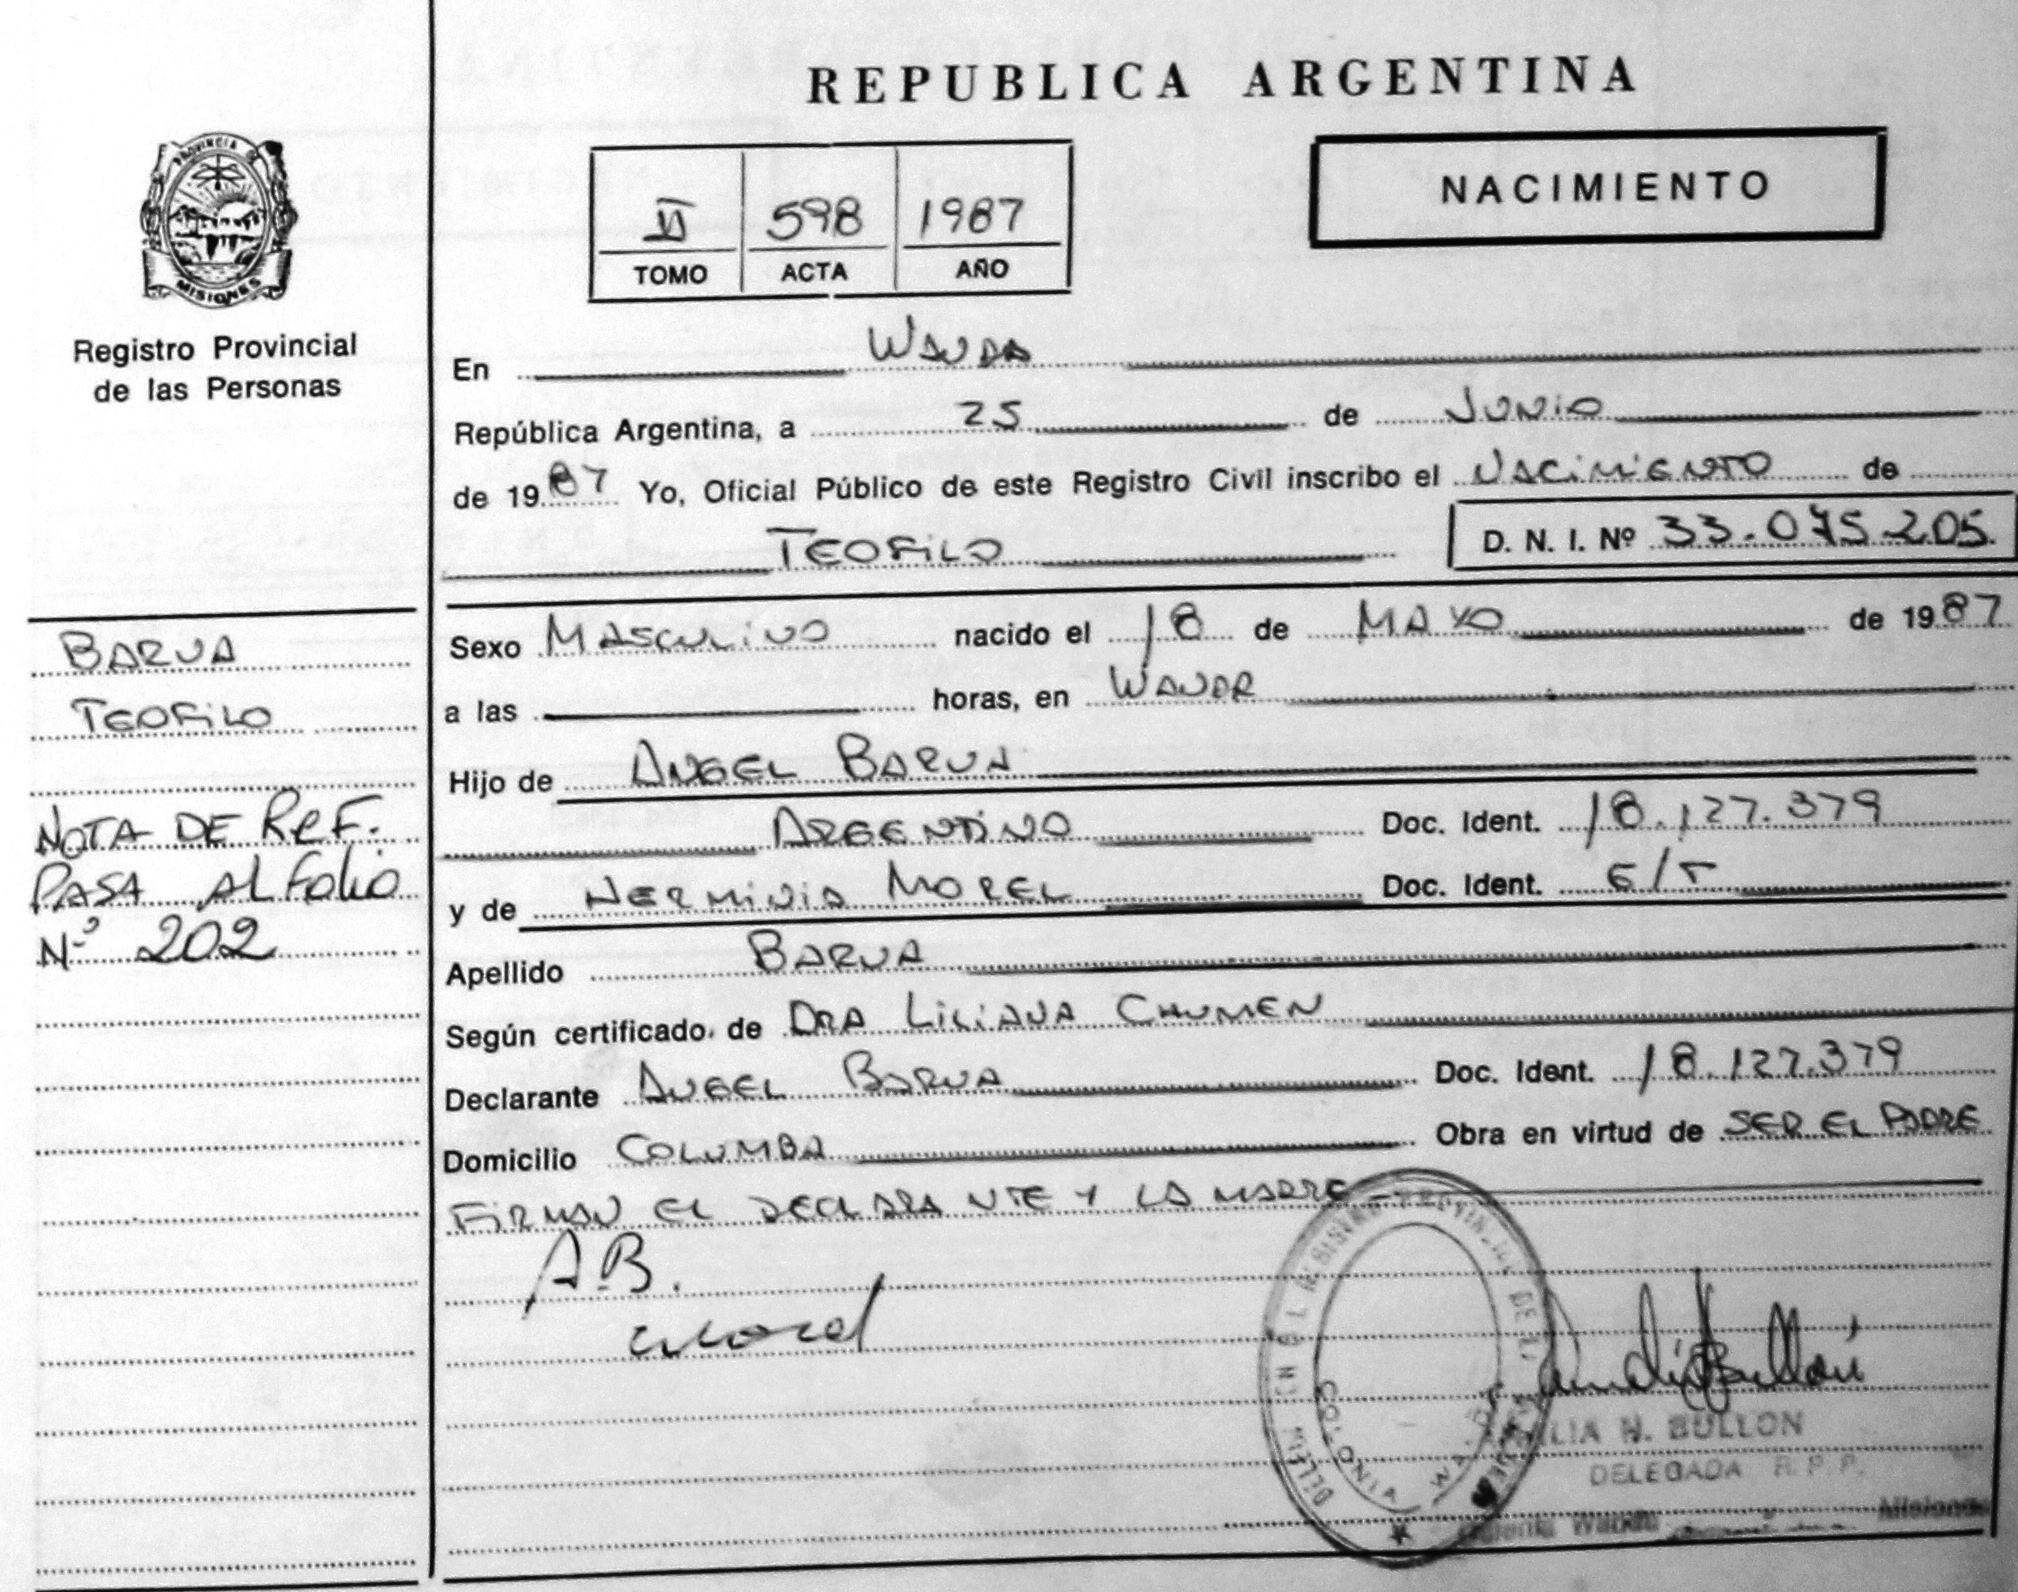 REPUBLICA ARGENTINA
PROVINCIA DE
MISIONES
Registro Provincial
de las Personas
VI 598 1987
TOMO ACTA AÑO
NACIMIENTO
En WANDA
República Argentina, a 25 de JUNIO
de 1987 Yo, Oficial Público de este Registro Civil inscribo el NACIMIENTO de
TEOFILO D. N. I. Nº 33.075.205.
BARUA
TEOFILO
NOTA DE REF.
PASA AL Folio
Nº 202
Sexo MASCULINO nacido el 18 de MAYO de 1987
a las horas, en WANDA
Hijo de ANGEL BARUA
ARGENTINO Doc. Ident. 18.127.379
y de HERMINIA MOREL Doc. Ident. E/T
Apellido BARUA
Según certificado de DRA LILIANA CHUMEN
Declarante ANGEL BARUA Doc. Ident. 18.127.379
Domicilio COLUMBA Obra en virtud de SER EL PADRE
FIRMAN EL DECLARANTE Y LA MADRE-
A.B.
Morel
REGISTRO PROVINCIAL DE
COLONIA WANDA
H. BULLON
DELEGADA R.P.P.
Colonia Wanda Misiones